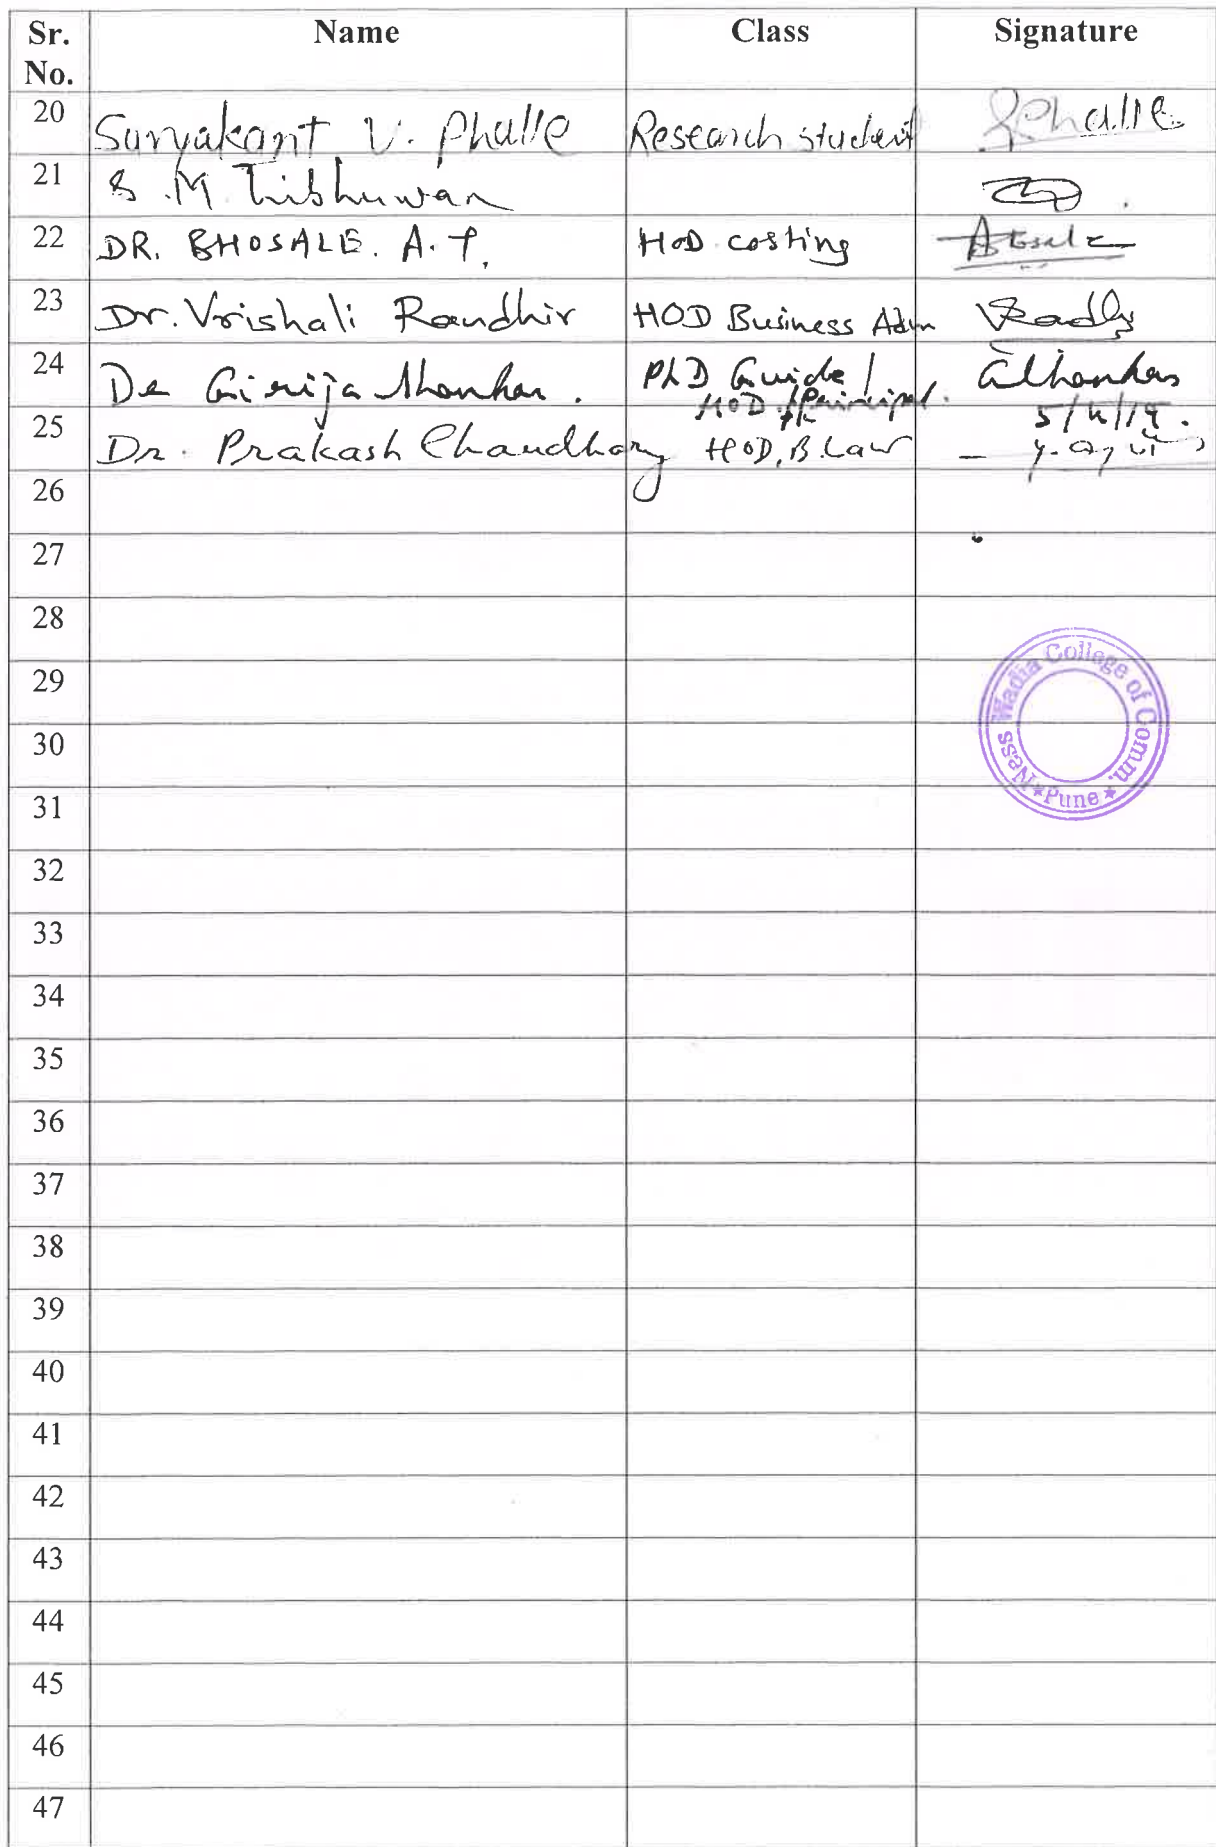 Sr. No. Name Class Signature
20 Suryakant V. Phalle Research student Phalle
21 S. M. Tribhuwan
22 DR. BHOSALE. A. T. HOD costing
23 Dr. Vrishali Randhir HOD Business Adm
24 Dr Girija Shankar. PhD Guide /
HOD /Principal.
5/4/19.
25 Dr. Prakash Chaudhary HOD, B.Law
26
27
28
29
30
31
32
33
34
35
36
37
38
39
40
41
42
43
44
45
46
47
Ness Wadia College of Comm. * Pune *